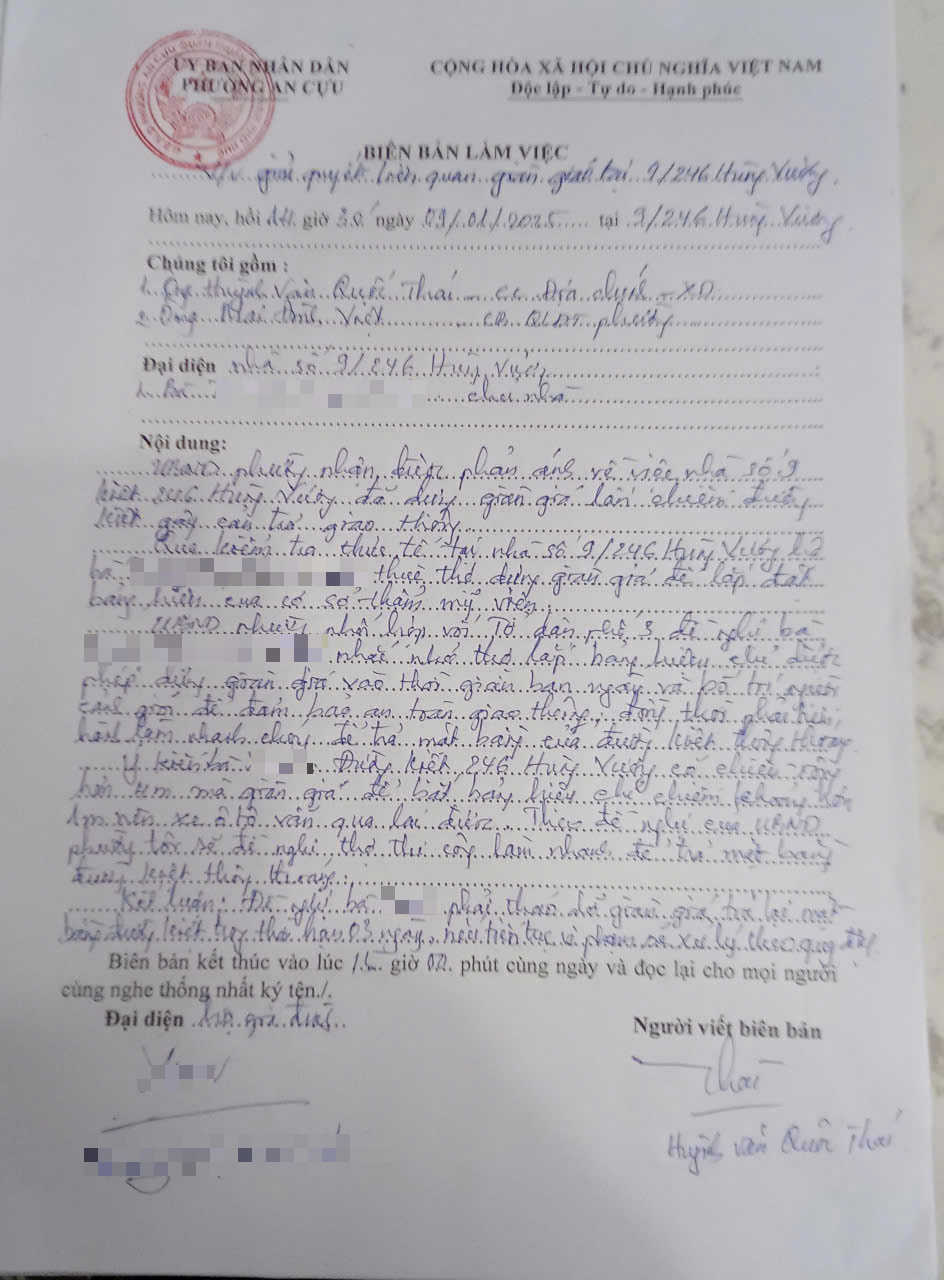 ỦY BAN NHÂN DÂN
PHƯỜNG AN CỰU
CỘNG HÒA XÃ HỘI CHỦ NGHĨA VIỆT NAM
Độc lập - Tự do - Hạnh phúc
BIÊN BẢN LÀM VIỆC
V/v giải quyết liên quan giàn giáo tại 9/246 Hùng Vương
Hôm nay, hồi giờ 30 ngày 09/01/2025 tại 9/246 Hùng Vương
Chúng tôi gồm :
1. Ông Huỳnh Văn Quốc Thái - CC Địa chính - XD
2. Ông Việt CB QLĐT phường
Đại diện nhà số 9/246 Hùng Vương
1. Bà chủ nhà
Nội dung:
UBND phường nhận được phản ánh về việc nhà số 9
kiệt 246 Hùng Vương đã dựng giàn giá lấn chiếm đường
kiệt gây cản trở giao thông.
Qua kiểm tra thực tế tại nhà số 9/246 Hùng Vương
bà thuê thợ dựng giàn giá để lắp đặt
bảng hiệu của cơ sở thẩm mỹ viện.
UBND phường phối hợp với Tổ dân phố 3 đề nghị bà
nhắc nhở thợ lắp bảng hiệu chỉ được
phép dựng giàn giá vào thời gian ban ngày và bố trí người
cảnh giới để đảm bảo an toàn giao thông, đồng thời phải
làm nhanh chóng để trả mặt bằng của đường kiệt
Ý kiến bà Đường kiệt 246 Hùng Vương có chiều rộng
hơn mà giàn giá để bắt bảng hiệu chỉ chiếm khoảng hơn
1m nên xe ô tô vẫn qua lại được. Theo đề nghị của UBND
phường tôi sẽ đề nghị thợ thi công làm nhanh để trả mặt bằng
đường kiệt thông thoáng.
Kết luận: Đề nghị bà phải tháo dỡ giàn giá, trả lại mặt
bằng đường kiệt trong thời hạn 03 ngày, nếu tiếp tục vi phạm sẽ xử lý theo quy định.
Biên bản kết thúc vào lúc giờ 02 phút cùng ngày và đọc lại cho mọi người
cùng nghe thống nhất ký tên./.
Đại diện hộ gia đình
Người viết biên bản
Thái
Huỳnh Văn Quốc Thái